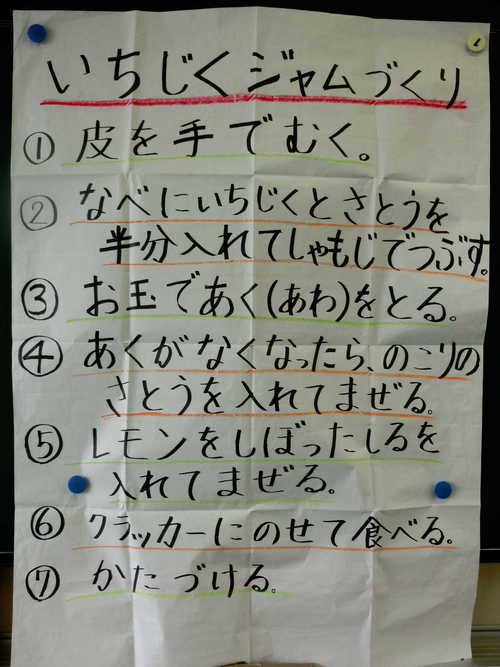 いちじくジャムづくり
① 皮を手でむく。
② なべにいちじくとさとうを
半分入れてしゃもじでつぶす。
③ お玉であく(あわ)をとる。
④ あくがなくなったら、のこりの
さとうを入れてまぜる。
⑤ レモンをしぼったしるを
入れてまぜる。
⑥ クラッカーにのせて食べる。
⑦ かたづける。